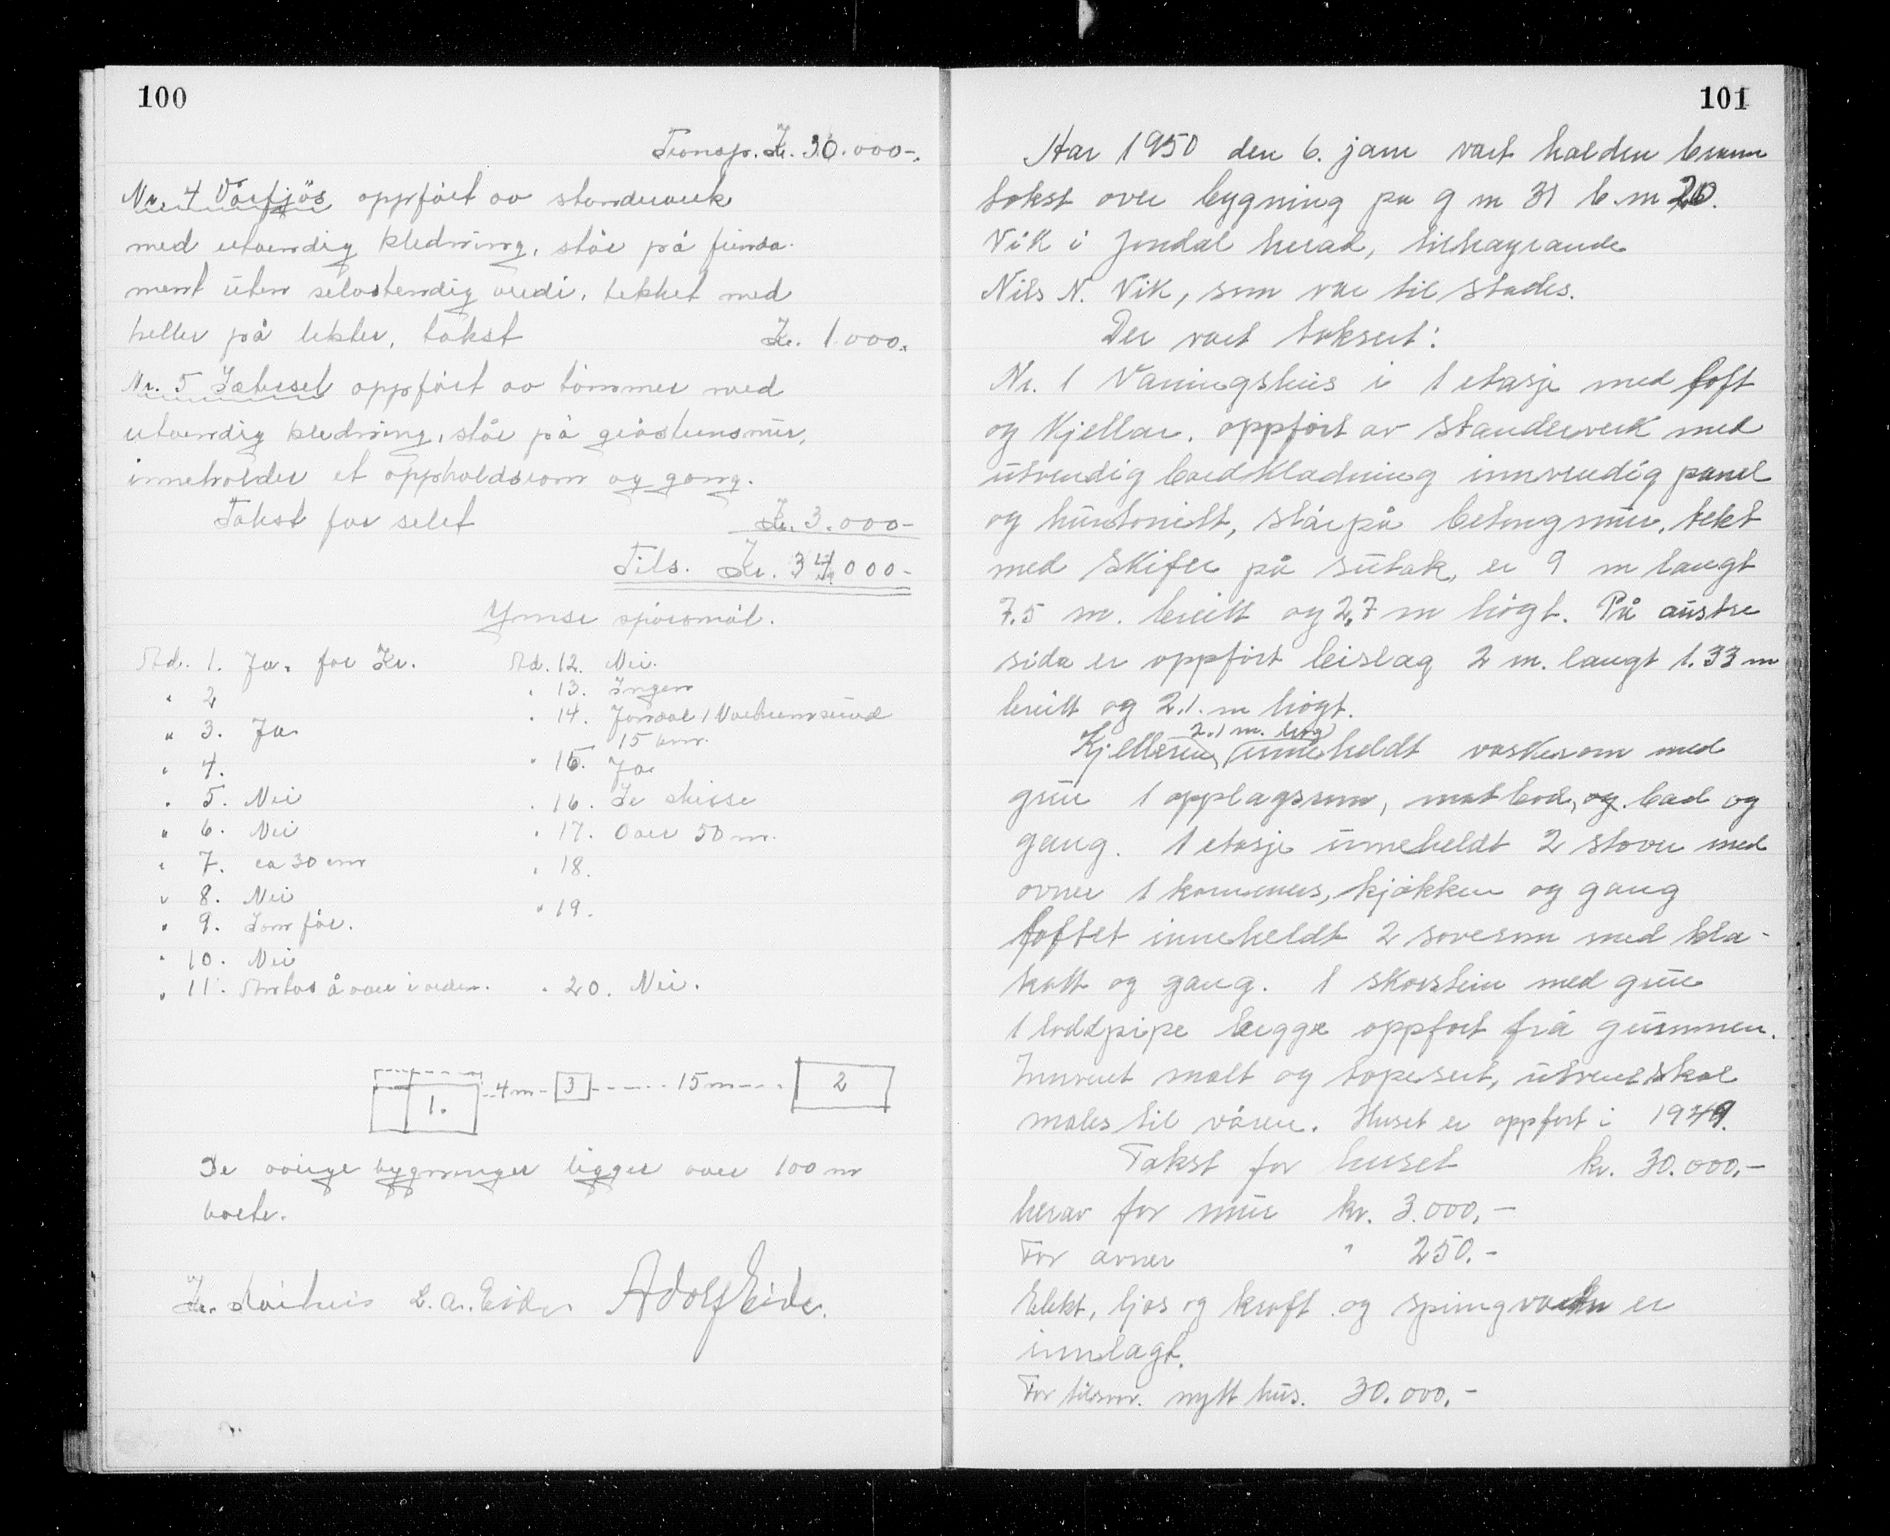 100
Transp. Kr. 30.000-.
Nr. 4 Vårfjös oppfört av standerverk
med utvendig kledning, står på funda-
ment uten selvstendig verdi, tekket med
heller på lekter, takst Kr. 1.000.
Nr. 5 Sætersel oppfört av tömmer med
utvendig kledning, står på gråsteinsmur,
inneholder et oppholdsrom og gang.
Takst for selet Kr. 3.000-
Tils. Kr. 34.000-
Ymse spörsmål.
Ad. 1. Ja. for Kr.
" 2
" 3. Ja
" 4.
" 5. Nei
" 6. Nei
" 7. ca 30 cm
" 8. Nei
" 9. Som för.
" 10. Nei
" 11. Antas å være i orden.
Ad. 12. Nei.
" 13. Ingen
" 14. Jondal / Vatnum
15 km.
" 15. Ja
" 16. Se skisse
" 17. Over 50 m.
" 18.
" 19.
" 20. Nei.
1. 4 m 3 15 m 2
De övrige bygninger ligger over 100 m
borte.
L. A. Eide Adolf Eide.
101
Har 1950 den 6. jam vart halden brann
takst over bygning på g m 31 b. m 20.
Vik i Jondal herad, tilhøyrande
Nils N. Vik, som var til stades.
Der vart taksert:
Nr. 1 Vaningshus i 1 etasje med loft
og Kjellar. oppfört av standerverk med
utvendig bordkladning innvendig panel
og huntonitt, står på betongmur, tekt
med skifer på sutak, er 9 m langt
7.5 m. breitt og 2,7 m högt. På austre
sida er oppfört bislag 2 m. langt 1.33 m
breitt og 2.1. m högt.
2.1 m. høg
Kjelleren, inneheldt vaskerom med
grue 1 opplagsrom, matbod, og bad og
gang. 1 etasje inneheldt 2 stover med
ovner 1 kammers, kjökken og gang
Loftet inneheldt 2 soverom med kla-
kott og gang. 1 skorstein med grue
1 loddpipe begge oppfort frå grunnen.
Innvent malt og tapesert, utvent skal
males til våren. Huset er oppfort i 1949.
Takst for huset kr. 30.000,-
herav for mur kr. 3.000,-
For ovner " 250.-
Elekt, ljos og kraft og springvatn er
innlagt.
For tilsvar. nytt hus. 30.000,-